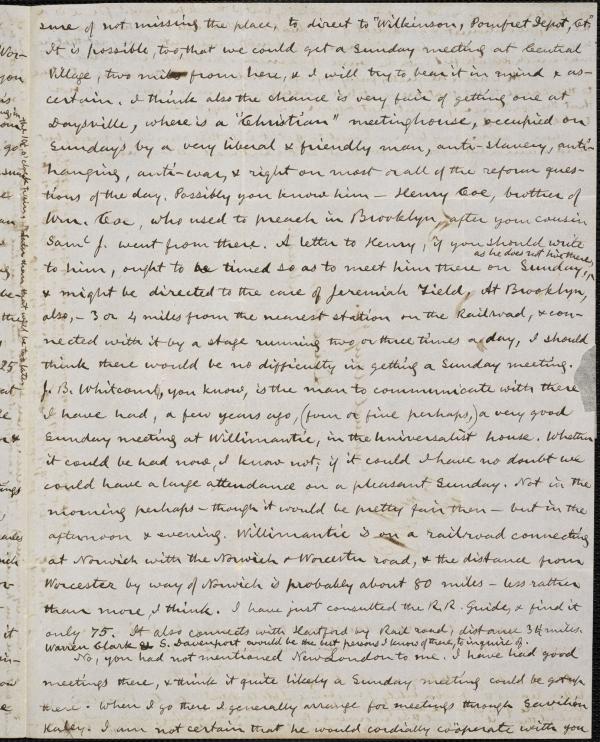 sure of not missing the place, to direct to "Wilkinson, Pomfret Depot, Ct."
It is possible, too, that we could get a Sunday meeting at Central
Village, two miles from here, & I will try to bear it in mind & as-
certain. I think also the chance is very fair of getting one at
Daysville, where is a "Christian" meetinghouse, occupied on
Sundays by a very liberal & friendly man, anti-slavery, anti-
hanging, anti-war, & right on most or all of the reform ques-
tions of the day. Possibly you know him — Henry Coe, brother of
Wm. Coe, who used to preach in Brooklyn, after your cousin
Saml J. went from there. A letter to Henry, if you should write
as he does not live there,
to him, ought to be timed so as to meet him there on Sunday,
& might be directed to the care of Jeremiah Field. At Brooklyn,
also, – 3 or 4 miles from the nearest station on the Railroad, & con-
nected with it by a stage running two or three times a day, I should
think there would be no difficulty in getting a Sunday meeting.
J. B. Whitcomb, you know, is the man to communicate with there
I have had, a few years ago, (four or five perhaps,) a very good
Sunday meeting at Willimantic, in the Universalist house. Whether
it could be had now, I know not; if it could I have no doubt we
could have a large attendance on a pleasant Sunday. Not in the
morning perhaps – though it would be pretty fair then – but in the
afternoon & evening. Willimantic is on a railroad connecting
at Norwich with the Norwich & Worcester road, & the distance from
Worcester by way of Norwich is probably about 80 miles – less rather
than more, I think. I have just consulted the R.R. Guide, & find it
only 75. It also connects with Hartford by Rail road, distance 31½ miles.
Warren Clark & S. Davenport would be the best persons I know of there, to inquire of.
No, you had not mentioned New London to me. I have had good
meetings there, & think it quite likely a Sunday meeting could be got up
there. When I go there I generally arrange for meetings through Savillion
Haley. I am not certain that he would cordially coöperate with you